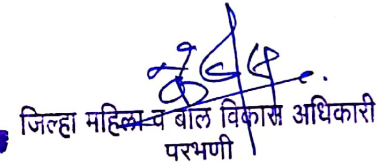 जिल्हा महिला व बाल विकास अधिकारी
परभणी